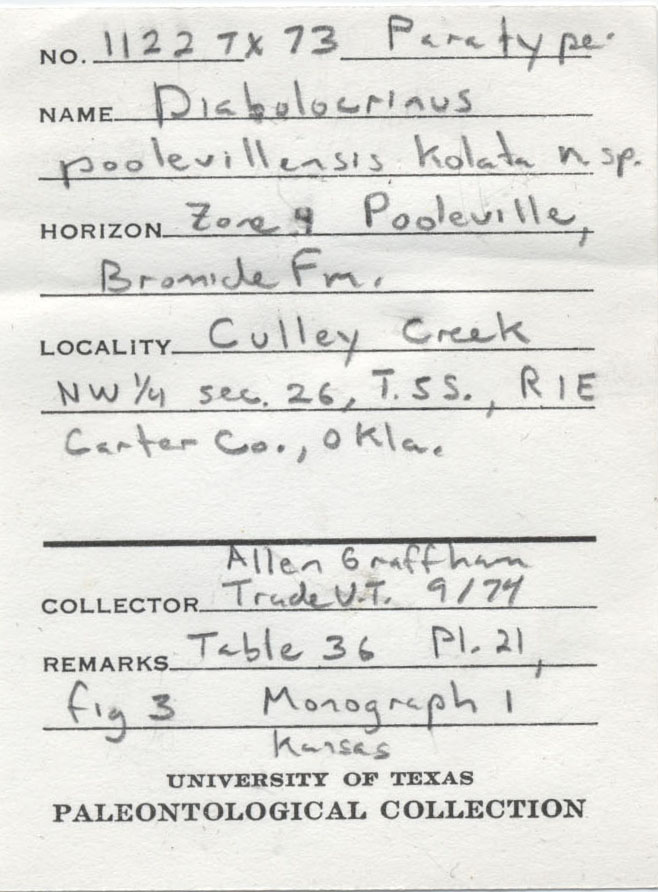 NO. 1122 TX 73 Paratype
NAME Diabolocrinus
poolevillensis Kolata n. sp.
HORIZON Zone 4 Pooleville,
Bromide Fm.
LOCALITY Culley Creek
NW 1/4 sec. 26, T. 5 S., R 1 E
Carter Co., Okla.
Allen Graffham
COLLECTOR Trade U.T. 9/74
REMARKS Table 36 Pl. 21,
fig 3 Monograph 1
Kansas
UNIVERSITY OF TEXAS
PALEONTOLOGICAL COLLECTION